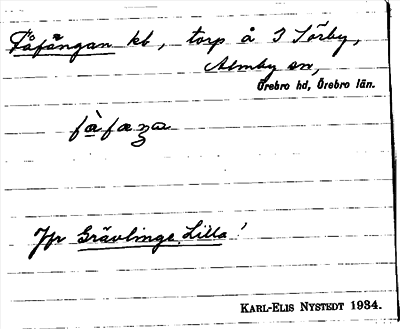 Fåfängan kb, torp å I Sörby,
Almby sn,
Örebro hd, Örebro län.
fàfaŋa
Jfr Grävlinge, Lilla!
KARL-ELIS NYSTEDT 1934.